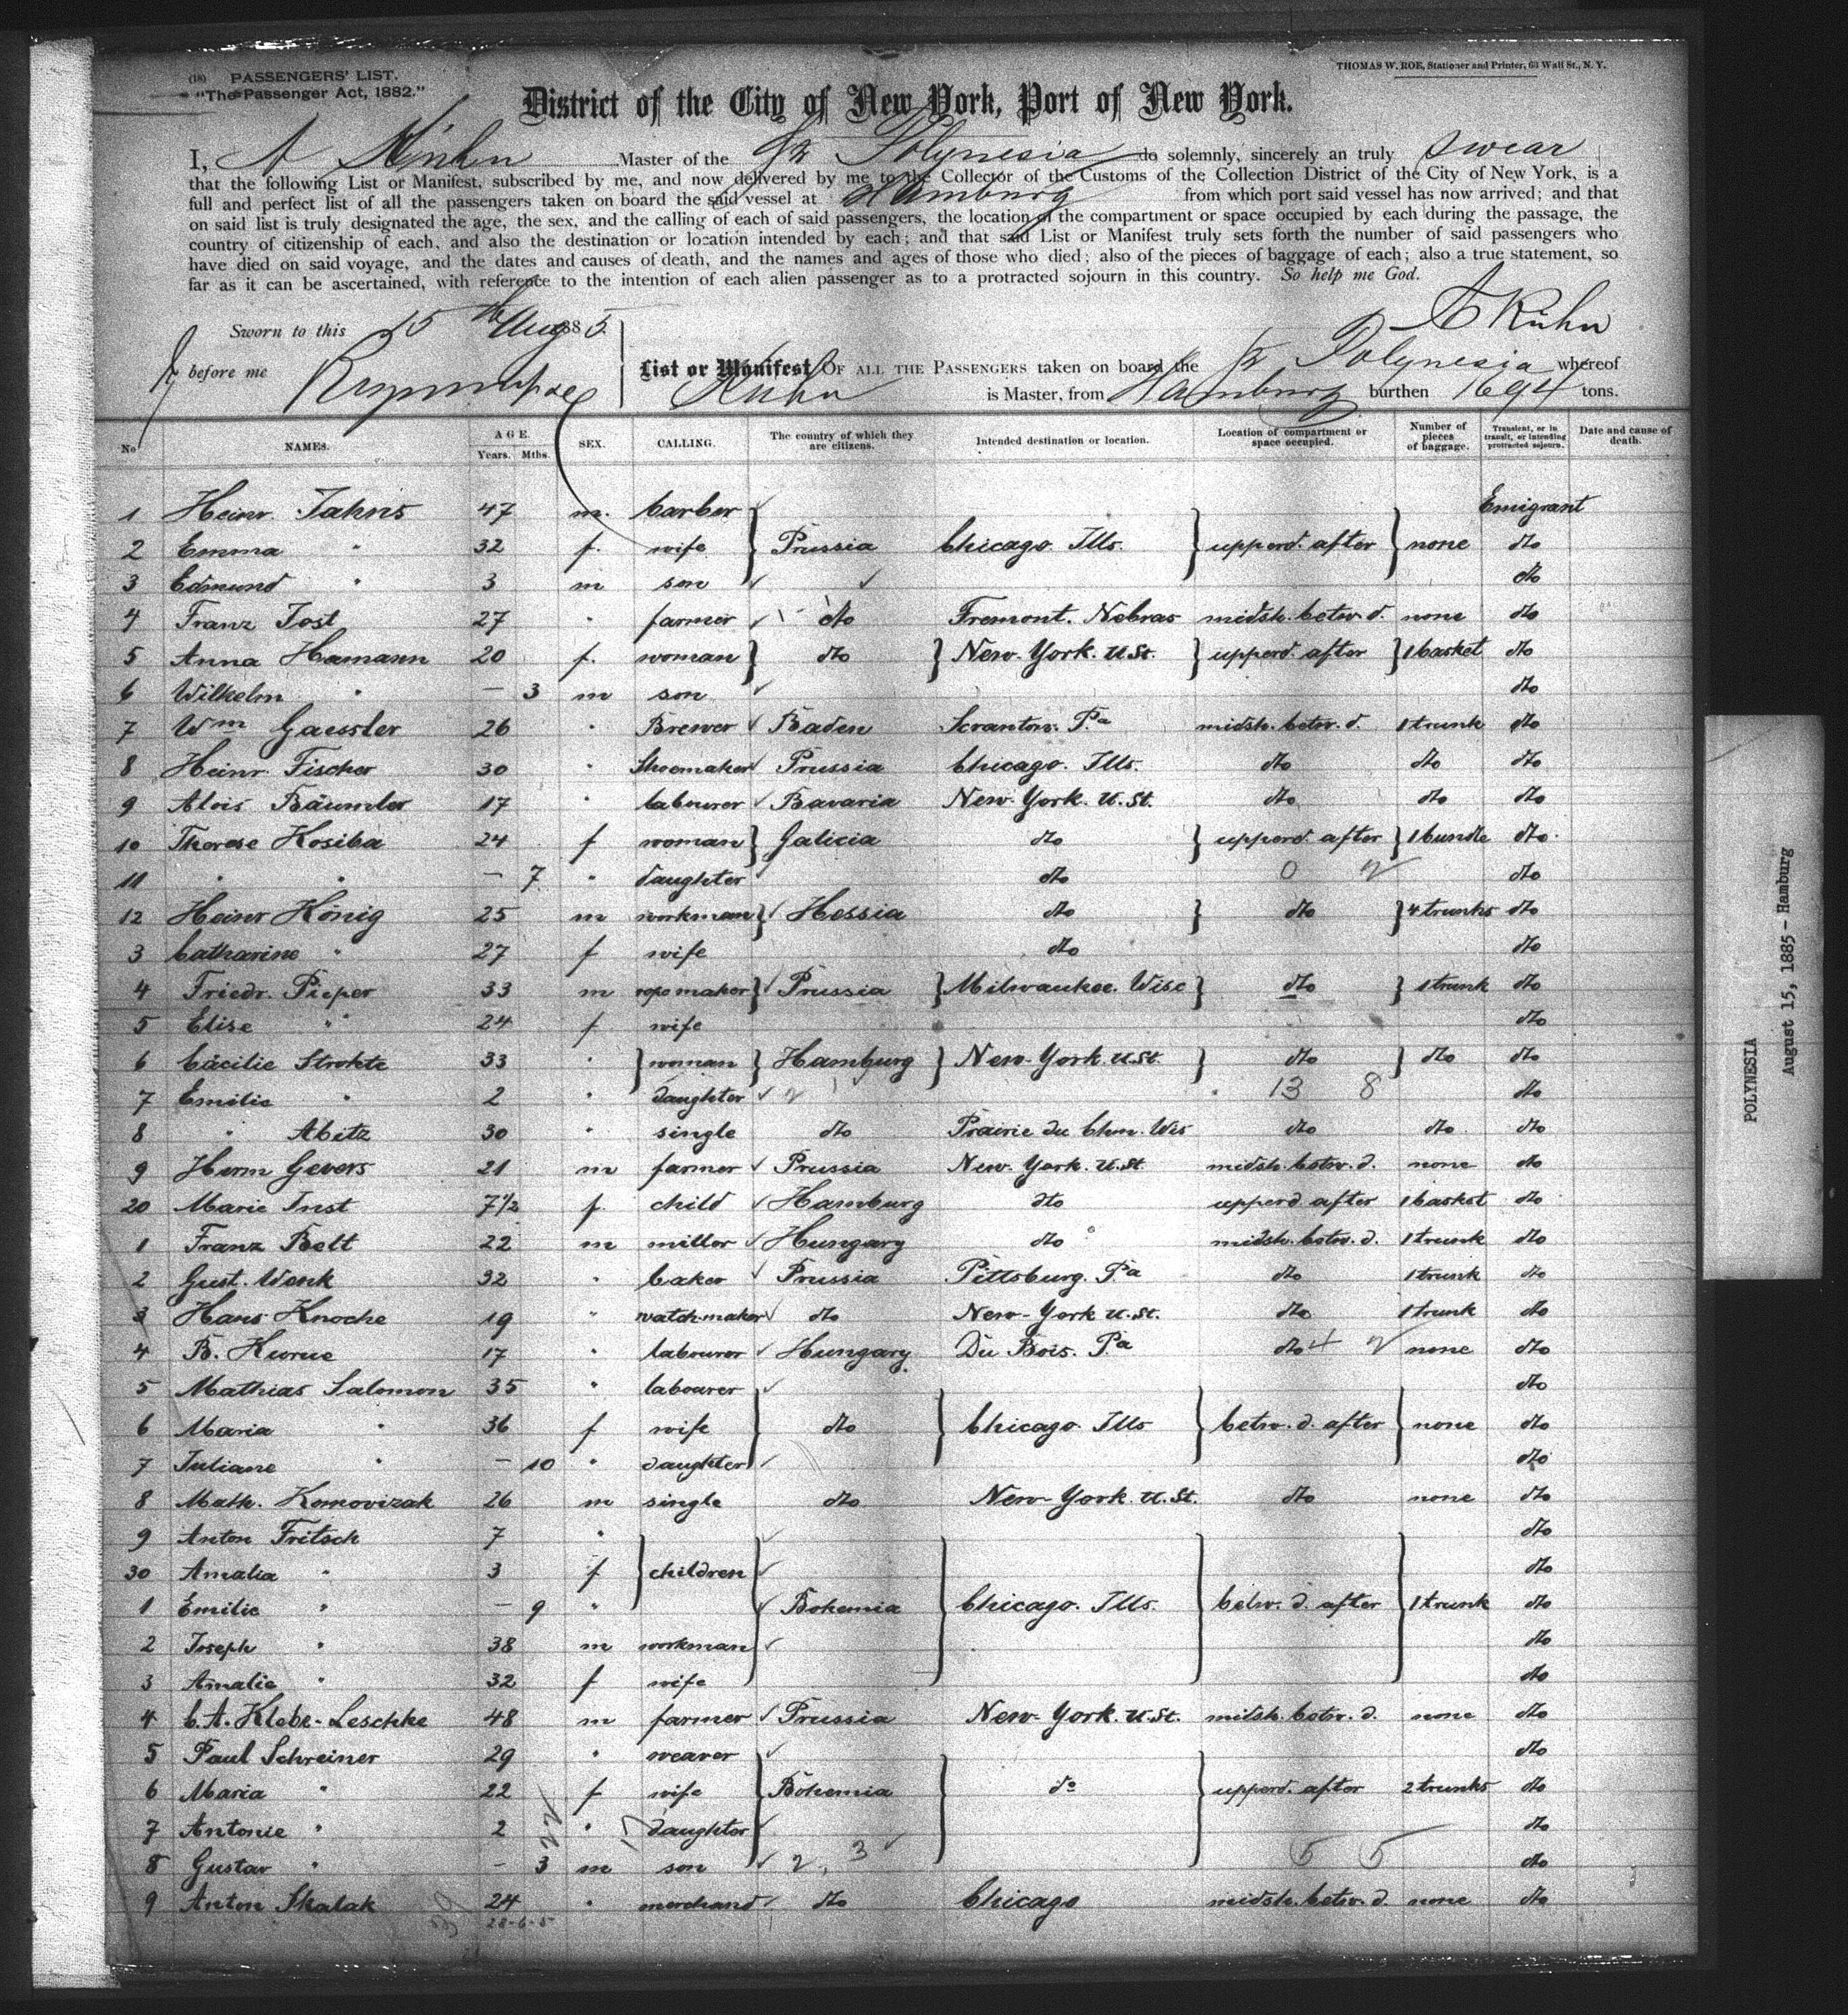 (18) PASSENGERS' LIST.
"The Passenger Act, 1882."
THOMAS W. ROE, Stationer and Printer, 63 Wall St., N. Y.
District of the City of New York, Port of New York.
I, A Kühn Master of the Polynesia do solemnly, sincerely an truly swear
that the following List or Manifest, subscribed by me, and now delivered by me to the Collector of the Customs of the Collection District of the City of New York, is a
full and perfect list of all the passengers taken on board the said vessel at Hamburg from which port said vessel has now arrived; and that
on said list is truly designated the age, the sex, and the calling of each of said passengers, the location of the compartment or space occupied by each during the passage, the
country of citizenship of each, and also the destination or location intended by each; and that said List or Manifest truly sets forth the number of said passengers who
have died on said voyage, and the dates and causes of death, and the names and ages of those who died; also of the pieces of baggage of each; also a true statement, so
far as it can be ascertained, with reference to the intention of each alien passenger as to a protracted sojourn in this country. So help me God.
A Kühn
Sworn to this 15th Aug 1885
before me
List or Manifest OF ALL THE PASSENGERS taken on board the Polynesia whereof
Kühn is Master, from Hamburg burthen 1694 tons.
No NAMES. AGE. Years. Mths. SEX. CALLING. The country of which they are citizens. Intended destination or location. Location of compartment or space occupied. Number of pieces of baggage. Transient, or in transit, or intending protracted sojourn. Date and cause of death.
1 Heinr. Jahns 47 m. barber Emigrant
2 Emma " 32 f. wife Prussia Chicago Ills. upperd. after none dto
3 Edmund " 3 m son dto
4 Franz Jost 27 " farmer dto Fremont. Nebras midsh. betw. d. none dto
5 Anna Hamann 20 f. woman dto New-York. U.St. upperd. after 1 basket dto
6 Wilhelm " — 3 m son dto
7 Wm Gaessler 26 " Brewer Baden Scranton. Pa midsh. betw. d. 1 trunk dto
8 Heinr. Fischer 30 " Shoemaker Prussia Chicago. Ills. dto dto dto
9 Alois Bäumler 17 " labourer Bavaria New-York. U.St. dto dto dto
10 Therese Kosiba 24 f woman Galicia dto upperd. after 1 bundle dto
11 " " — 7 " daughter dto 0 2 dto
12 Heinr König 25 m workman Hessia dto dto 4 trunks dto
3 Catharine " 27 f wife dto dto
4 Friedr. Pieper 33 m ropemaker Prussia Milwaukee. Wisc dto 1 trunk dto
5 Elise " 24 f wife dto
6 Cäcilie Strokte 33 " woman Hamburg New-York. U.St. dto dto dto
7 Emilie " 2 " daughter 2 13 8 dto
8 " Abetz 30 " single dto Prairie du Chm. Wis dto dto dto
9 Herm Gevers 21 m farmer Prussia New-York. U.St. midsh. betw. d. none dto
20 Marie Inst 7 1/2 f. child Hamburg dto upperd after 1 basket dto
1 Franz Bett 22 m miller Hungary dto midsh. betw. d. 1 trunk dto
2 Gust. Wenk 32 " baker Prussia Pittsburg. Pa dto 1 trunk dto
3 Hans Knoche 19 " watchmaker dto New-York U.St. dto 1 trunk dto
4 B. Kuruc 17 " labourer Hungary Du Bois. Pa dto 4 2 none dto
5 Mathias Salomon 35 " labourer dto
6 Maria " 36 f wife dto Chicago Ills betw. d. after none dto
7 Juliane " — 10 " daughter dto
8 Math. Komovizak 26 m single dto New-York. U.St. dto none dto
9 Anton Fritsch 7 " dto
30 Amalia " 3 f children dto
1 Emilie " — 9 " Bohemia Chicago. Ills. betw. d. after 1 trunk dto
2 Joseph " 38 m workman dto
3 Amalie " 32 f wife dto
4 C.A. Klebe-Leschke 48 m farmer Prussia New-York. U.St. midsh. betw. d. none dto
5 Paul Schreiner 29 " weaver dto
6 Maria " 22 f wife Bohemia do upperd. after 2 trunks dto
7 Antonie " 2 " daughter dto
8 Gustav " — 3 m son 2, 3 5 5 dto
9 Anton Skalak 24 " merchand dto Chicago midsh. betw. d. none dto
28-6-5
POLYNESIA
August 15, 1885 - Hamburg